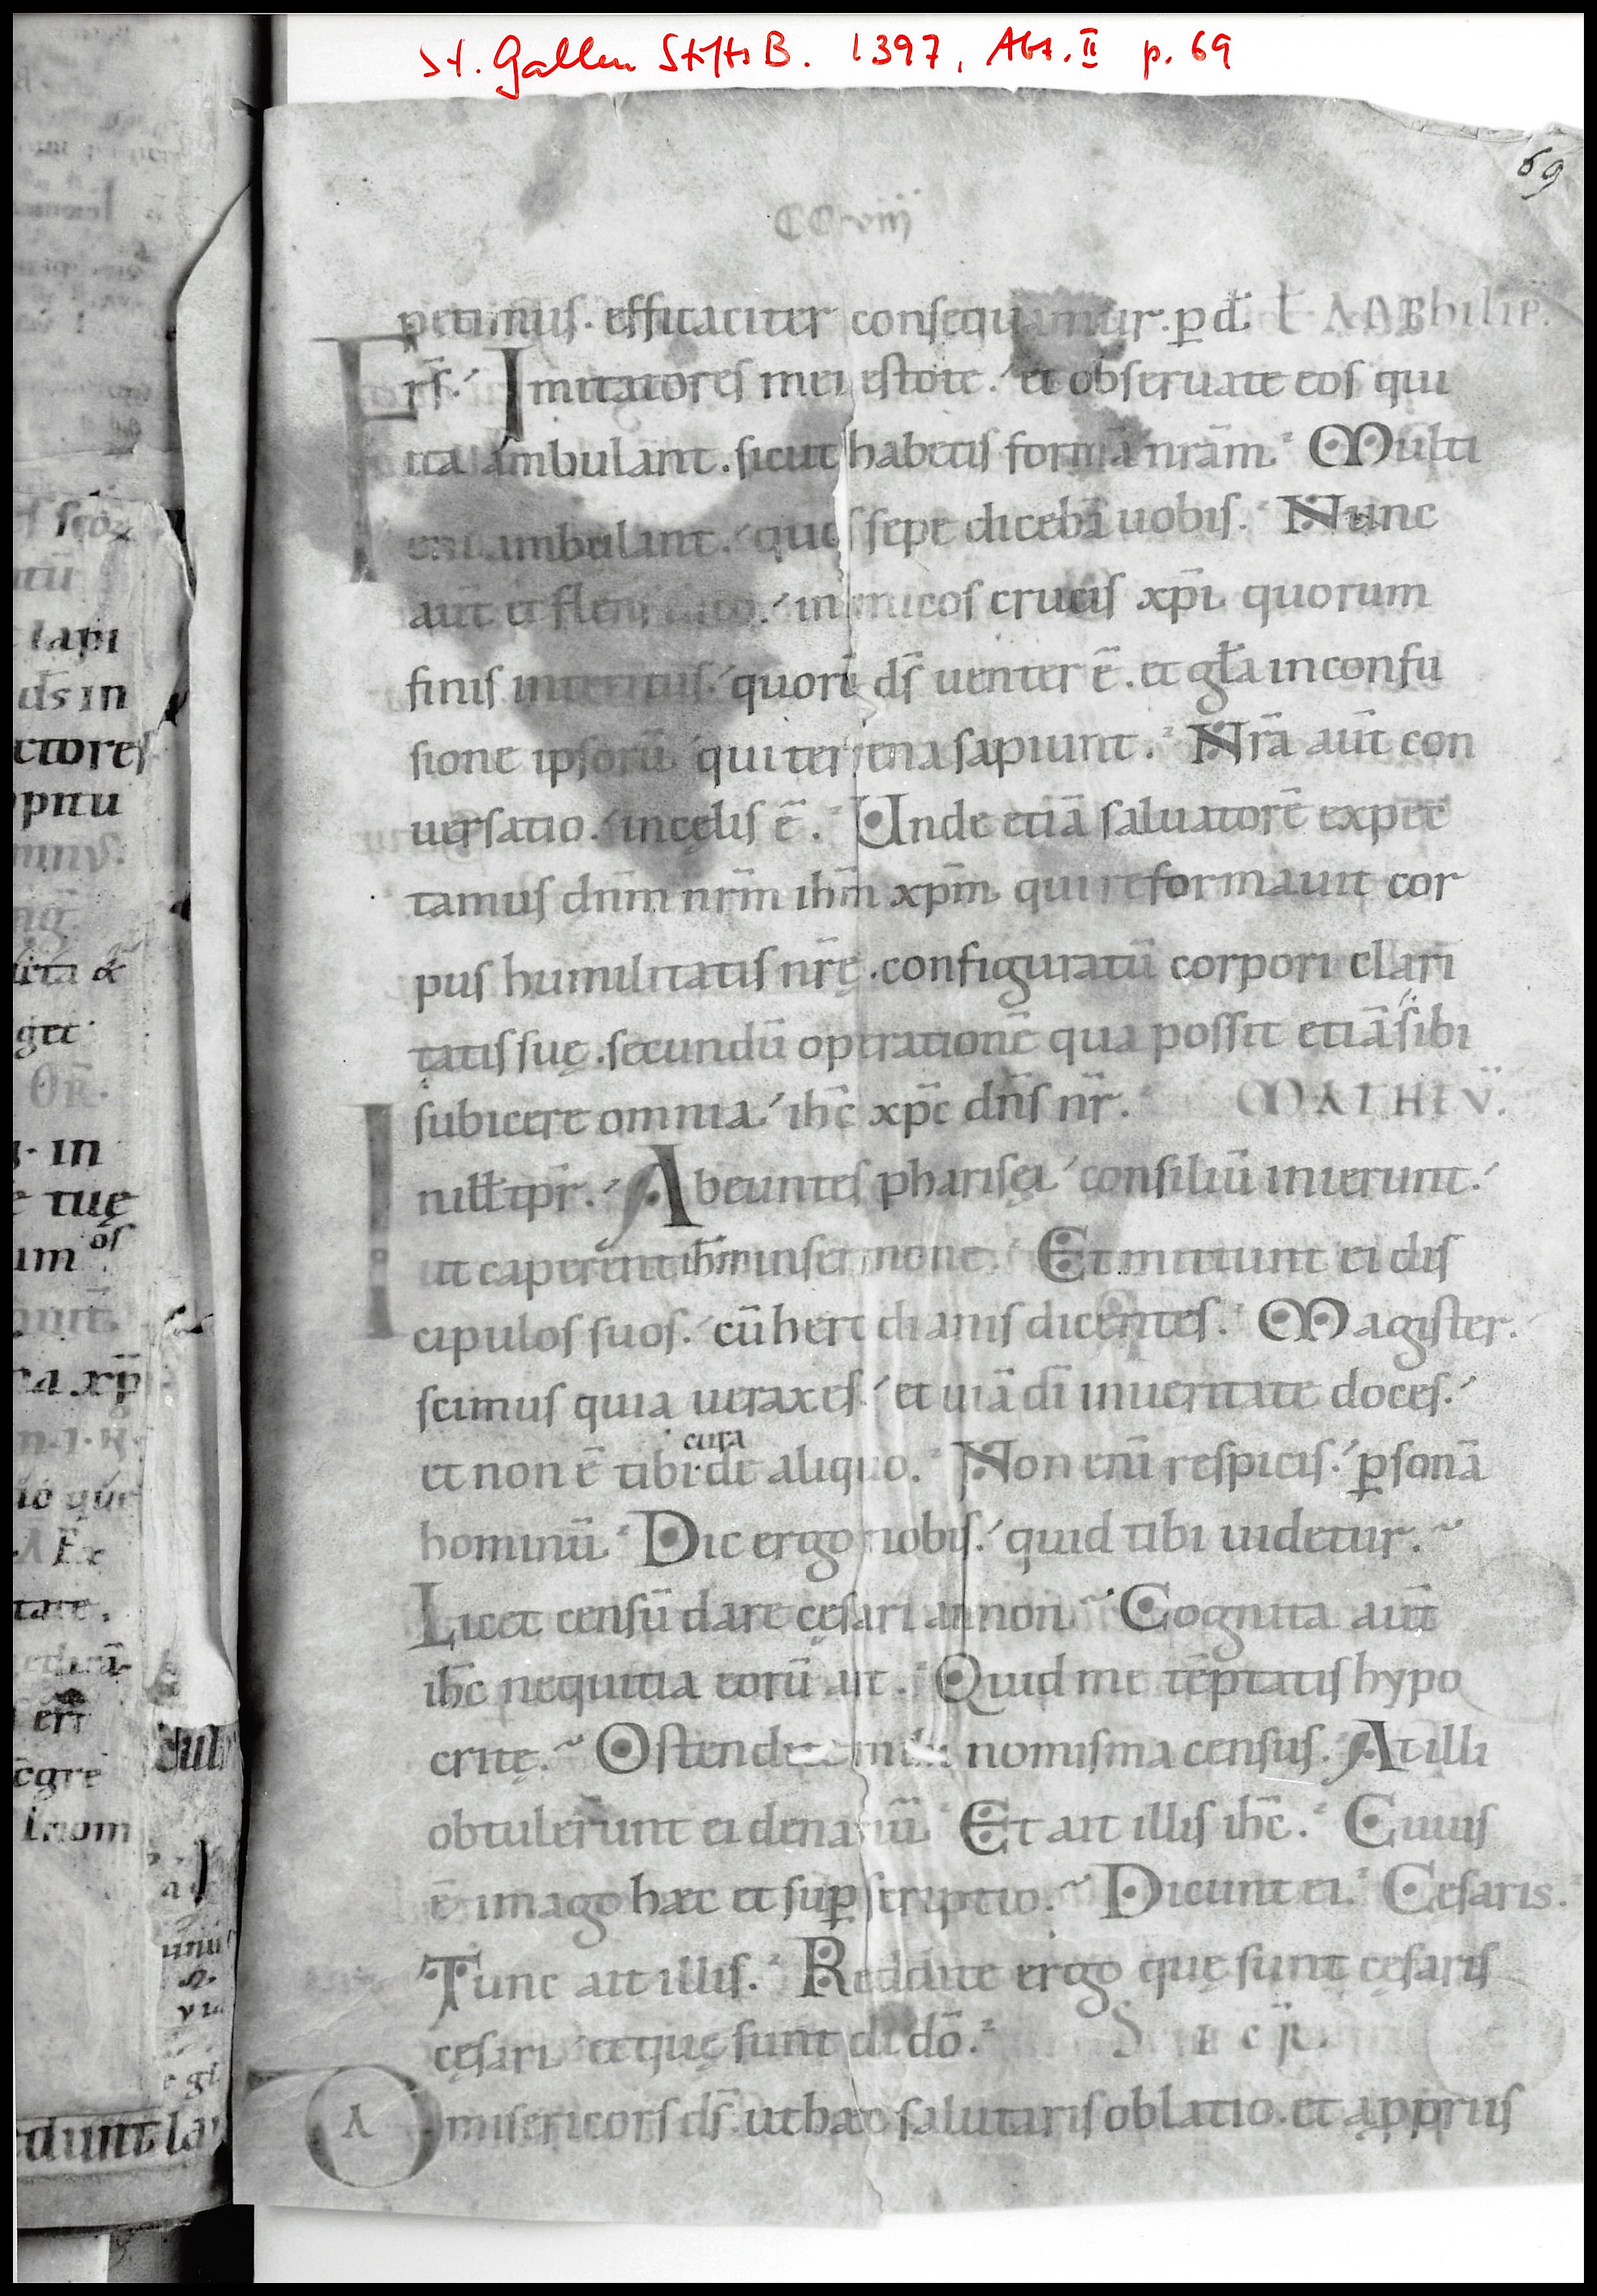 St. Gallen StiftsB. 1397, Abt. II p. 69
69
CCxviii
petimus. efficaciter consequamur. p̲ d̄. AD Philip̄.
Fr̄s. Imitatores mei estote. et obseruate eos qui
ita ambulant. sicut habetis formā nr̄am. Multi
eni ambulant. quos sepe dicebā uobis. Nunc
aut̄ et flens dico. inimicos crucis xp̄i quorum
finis interitus. quorū ds̄ uenter ē. et gl̄a in confu
sione ipsorū qui terrena sapiunt. Nr̄a aut̄ con
uersatio. in cęlis ē. Unde etiā saluatorē expec
tamus dn̄m nr̄m ih̄m xp̄m qui reformauit cor
pus humilitatis nr̄ę. configuratū corpori clari
tatis suę. secundū operationē qua possit etiā sibi
subicere omnia. ih̄c xp̄c dn̄s nr̄. MATHEV̄.
In ill̄ tp̄r. Abeuntes pharisęi consiliū inierunt.
ut caperent ih̄m in sermone. Et mittunt ei dis
cipulos suos. cū herodianis dicentes. Magister.
scimus quia uerax es. et uiā dī in ueritate doces.
cura
et non ē tibi de aliquo. Non enī respicis. p̲sonā
hominū. Dic ergo nobis. quid tibi uidetur.
Licet censū dare cęsari an non. Cognita aut̄
ih̄c nequitia eorū ait. Quid me tēptatis hypo
critę. Ostendite mihi nomisma census. At illi
obtulerunt ei denariū. Et ait illis ih̄c. Cuius
ē imago haec et sup̲scriptio. Dicunt ei. Cesaris.
Tunc ait illis. Reddite ergo quę sunt cęsaris
cęsari et quę sunt dī dō. S E C R̄
DA misericors ds̄. ut haec salutaris oblatio. et a p̲priis